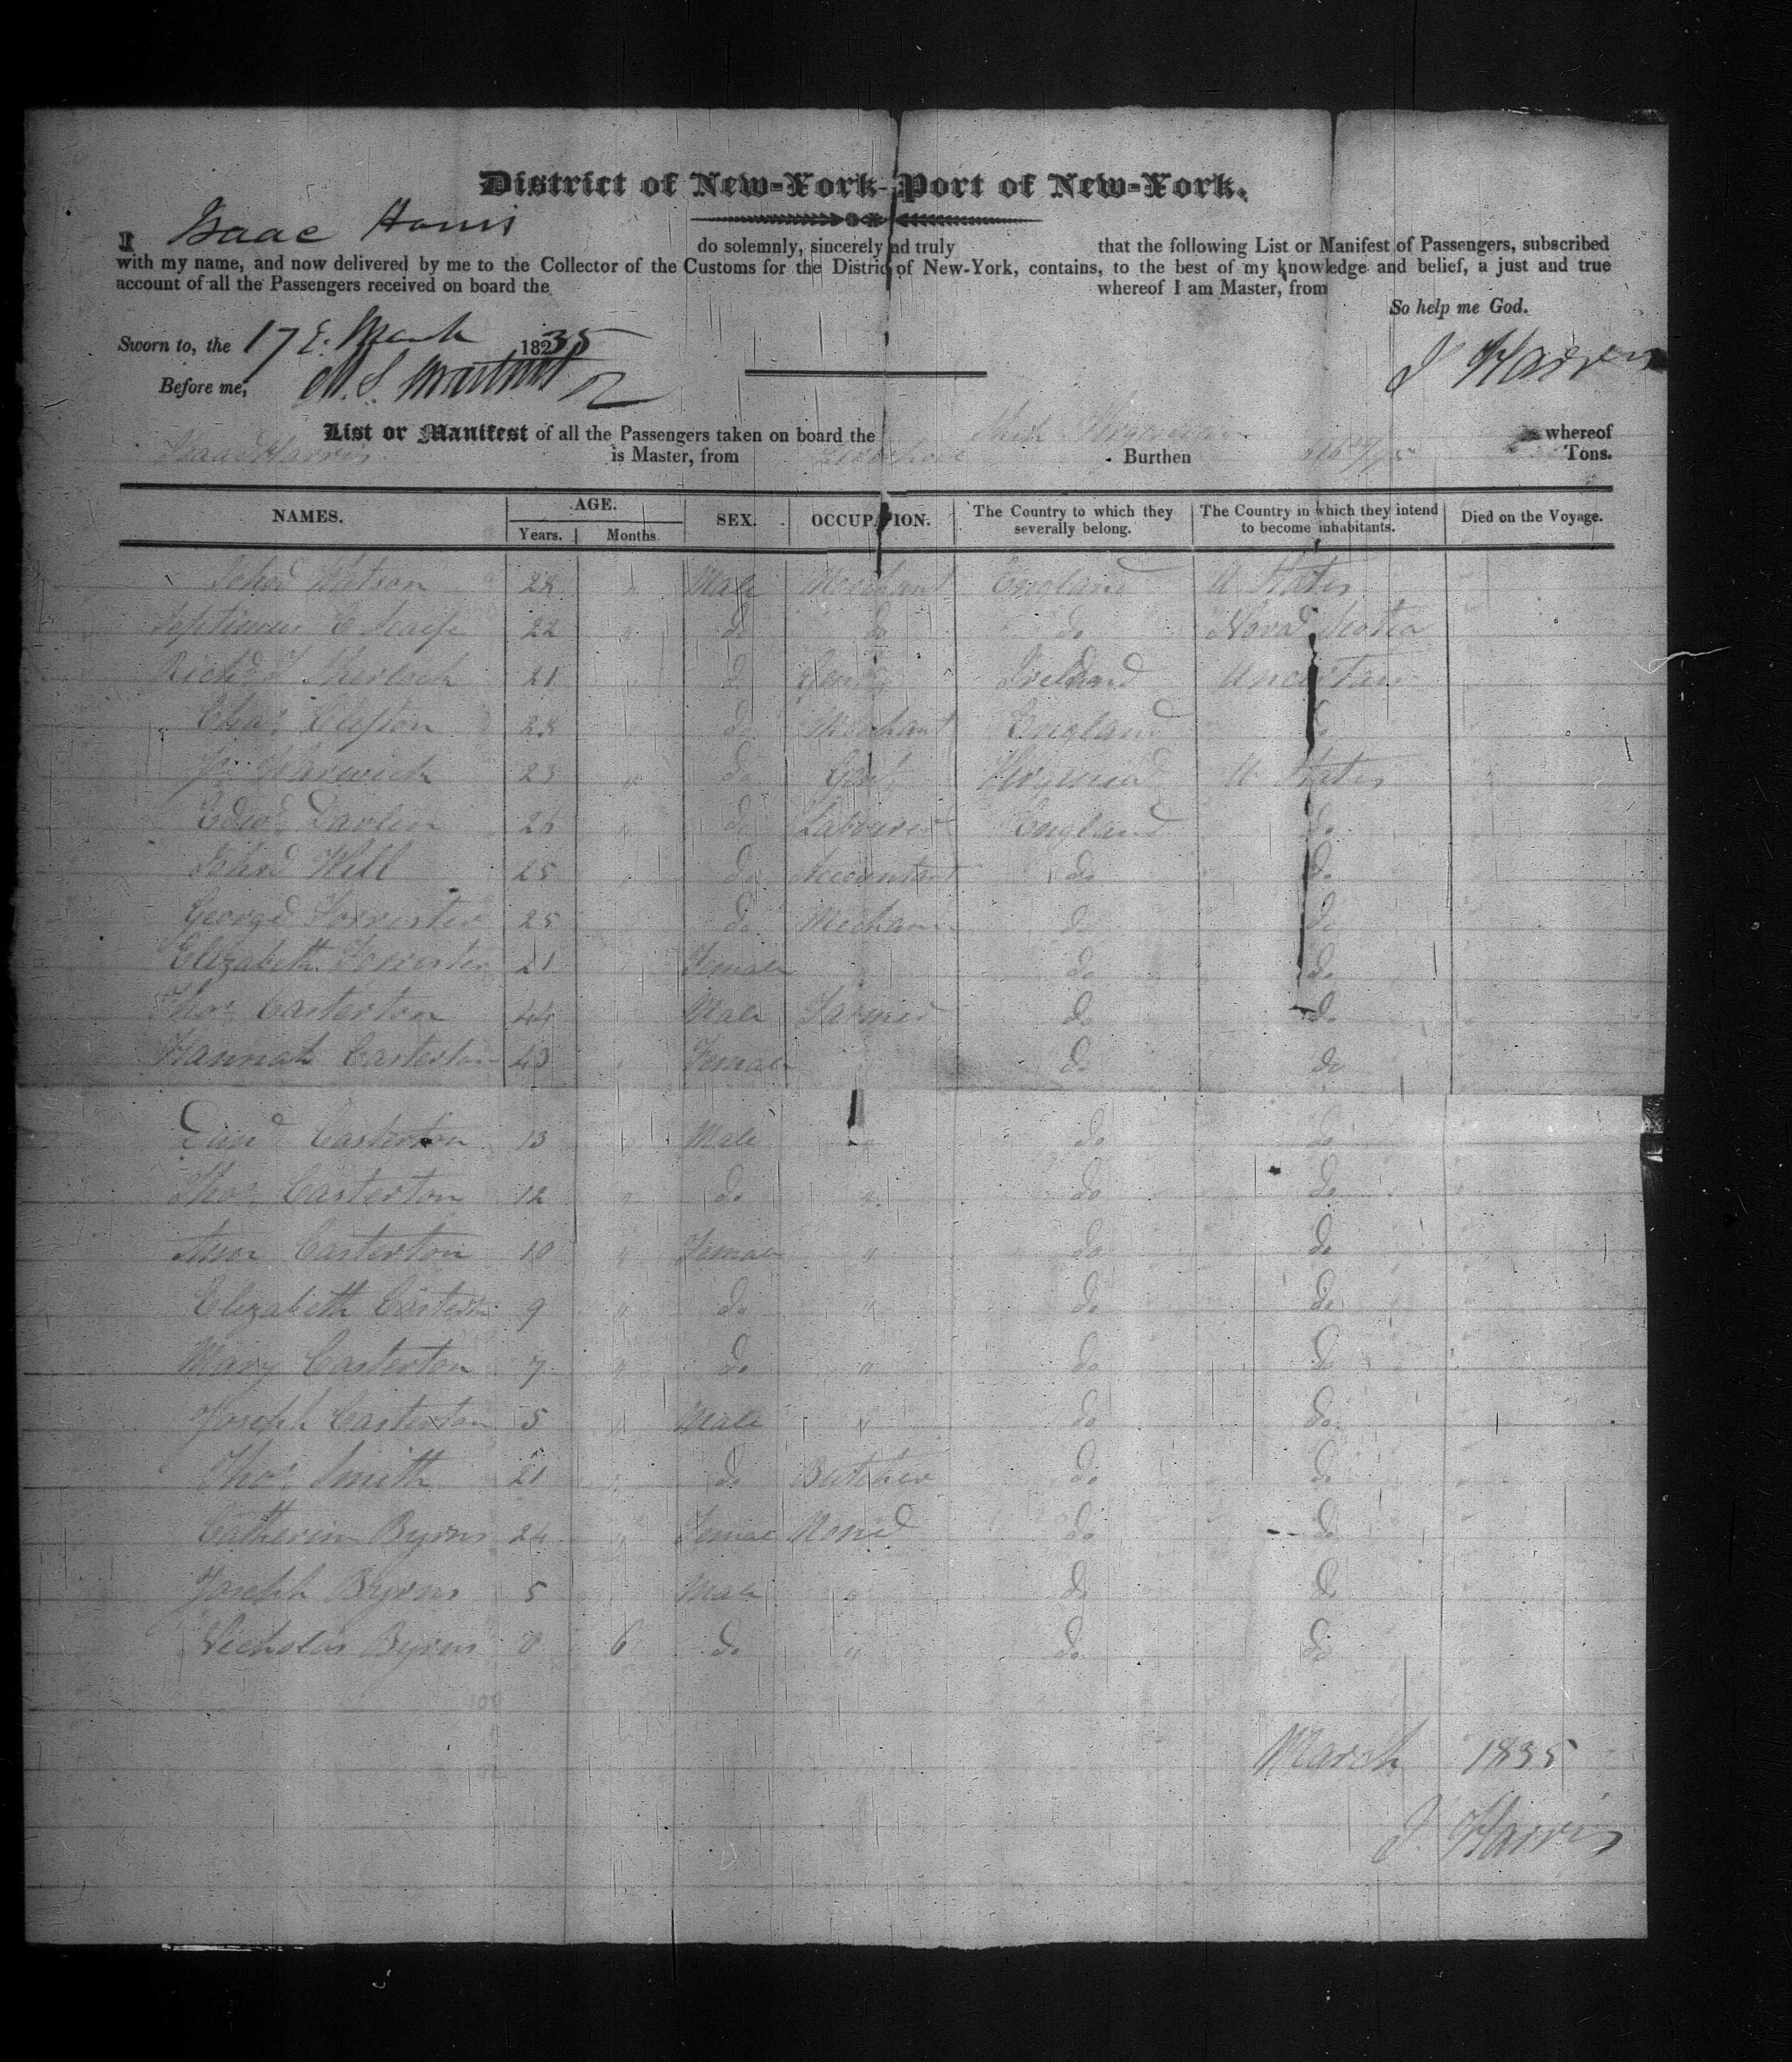 District of New-York-Port of New-York.
I Isaac Harris do solemnly, sincerely nd truly that the following List or Manifest of Passengers, subscribed
with my name, and now delivered by me to the Collector of the Customs for the District of New-York, contains, to the best of my knowledge and belief, a just and true
account of all the Passengers received on board the whereof I am Master, from
So help me God.
Sworn to, the 17 March 18235
Before me,
J Harris
List or Manifest of all the Passengers taken on board the Ship Virginian whereof
Isaac Harris is Master, from Liverpool Burthen Tons.
NAMES. AGE. SEX. OCCUPATION. The Country to which they severally belong. The Country in which they intend to become inhabitants. Died on the Voyage.
Years. Months
John Watson 28 " Male Merchant England U States
Septimus 22 " do do do Nova Scotia
Richd T Sherlock 21 " do Ireland Uncertain
Chas. Clifton 28 " do Merchant England do
Warwick 23 " do Gent Virginia U States
Edwd. Davlin 26 " do Labourer England do
John Will 25 " do Accountant do do
George Forrister 25 do Mechanic do do
Elizabeth Forrister 21 Female do do
Thos. Casterton 44 Male Farmer do do
Hannah Casterton 43 " Female do do
Casterton 13 " Male " do do
Thos. Casterton 12 " do " do do
Ann Casterton 10 " Female " do do
Elizabeth Casterton 9 " do " do do
Mary Casterton 7 " do " do do
Joseph Casterton 5 " Male " do do
Thos. Smith 21 " do Butcher do do
Catherine Byrns 24 " Female None do do
Joseph Byrns 5 Male " do do
Nicholas Byrns 0 6 do " do do
March 1835
J. Harris